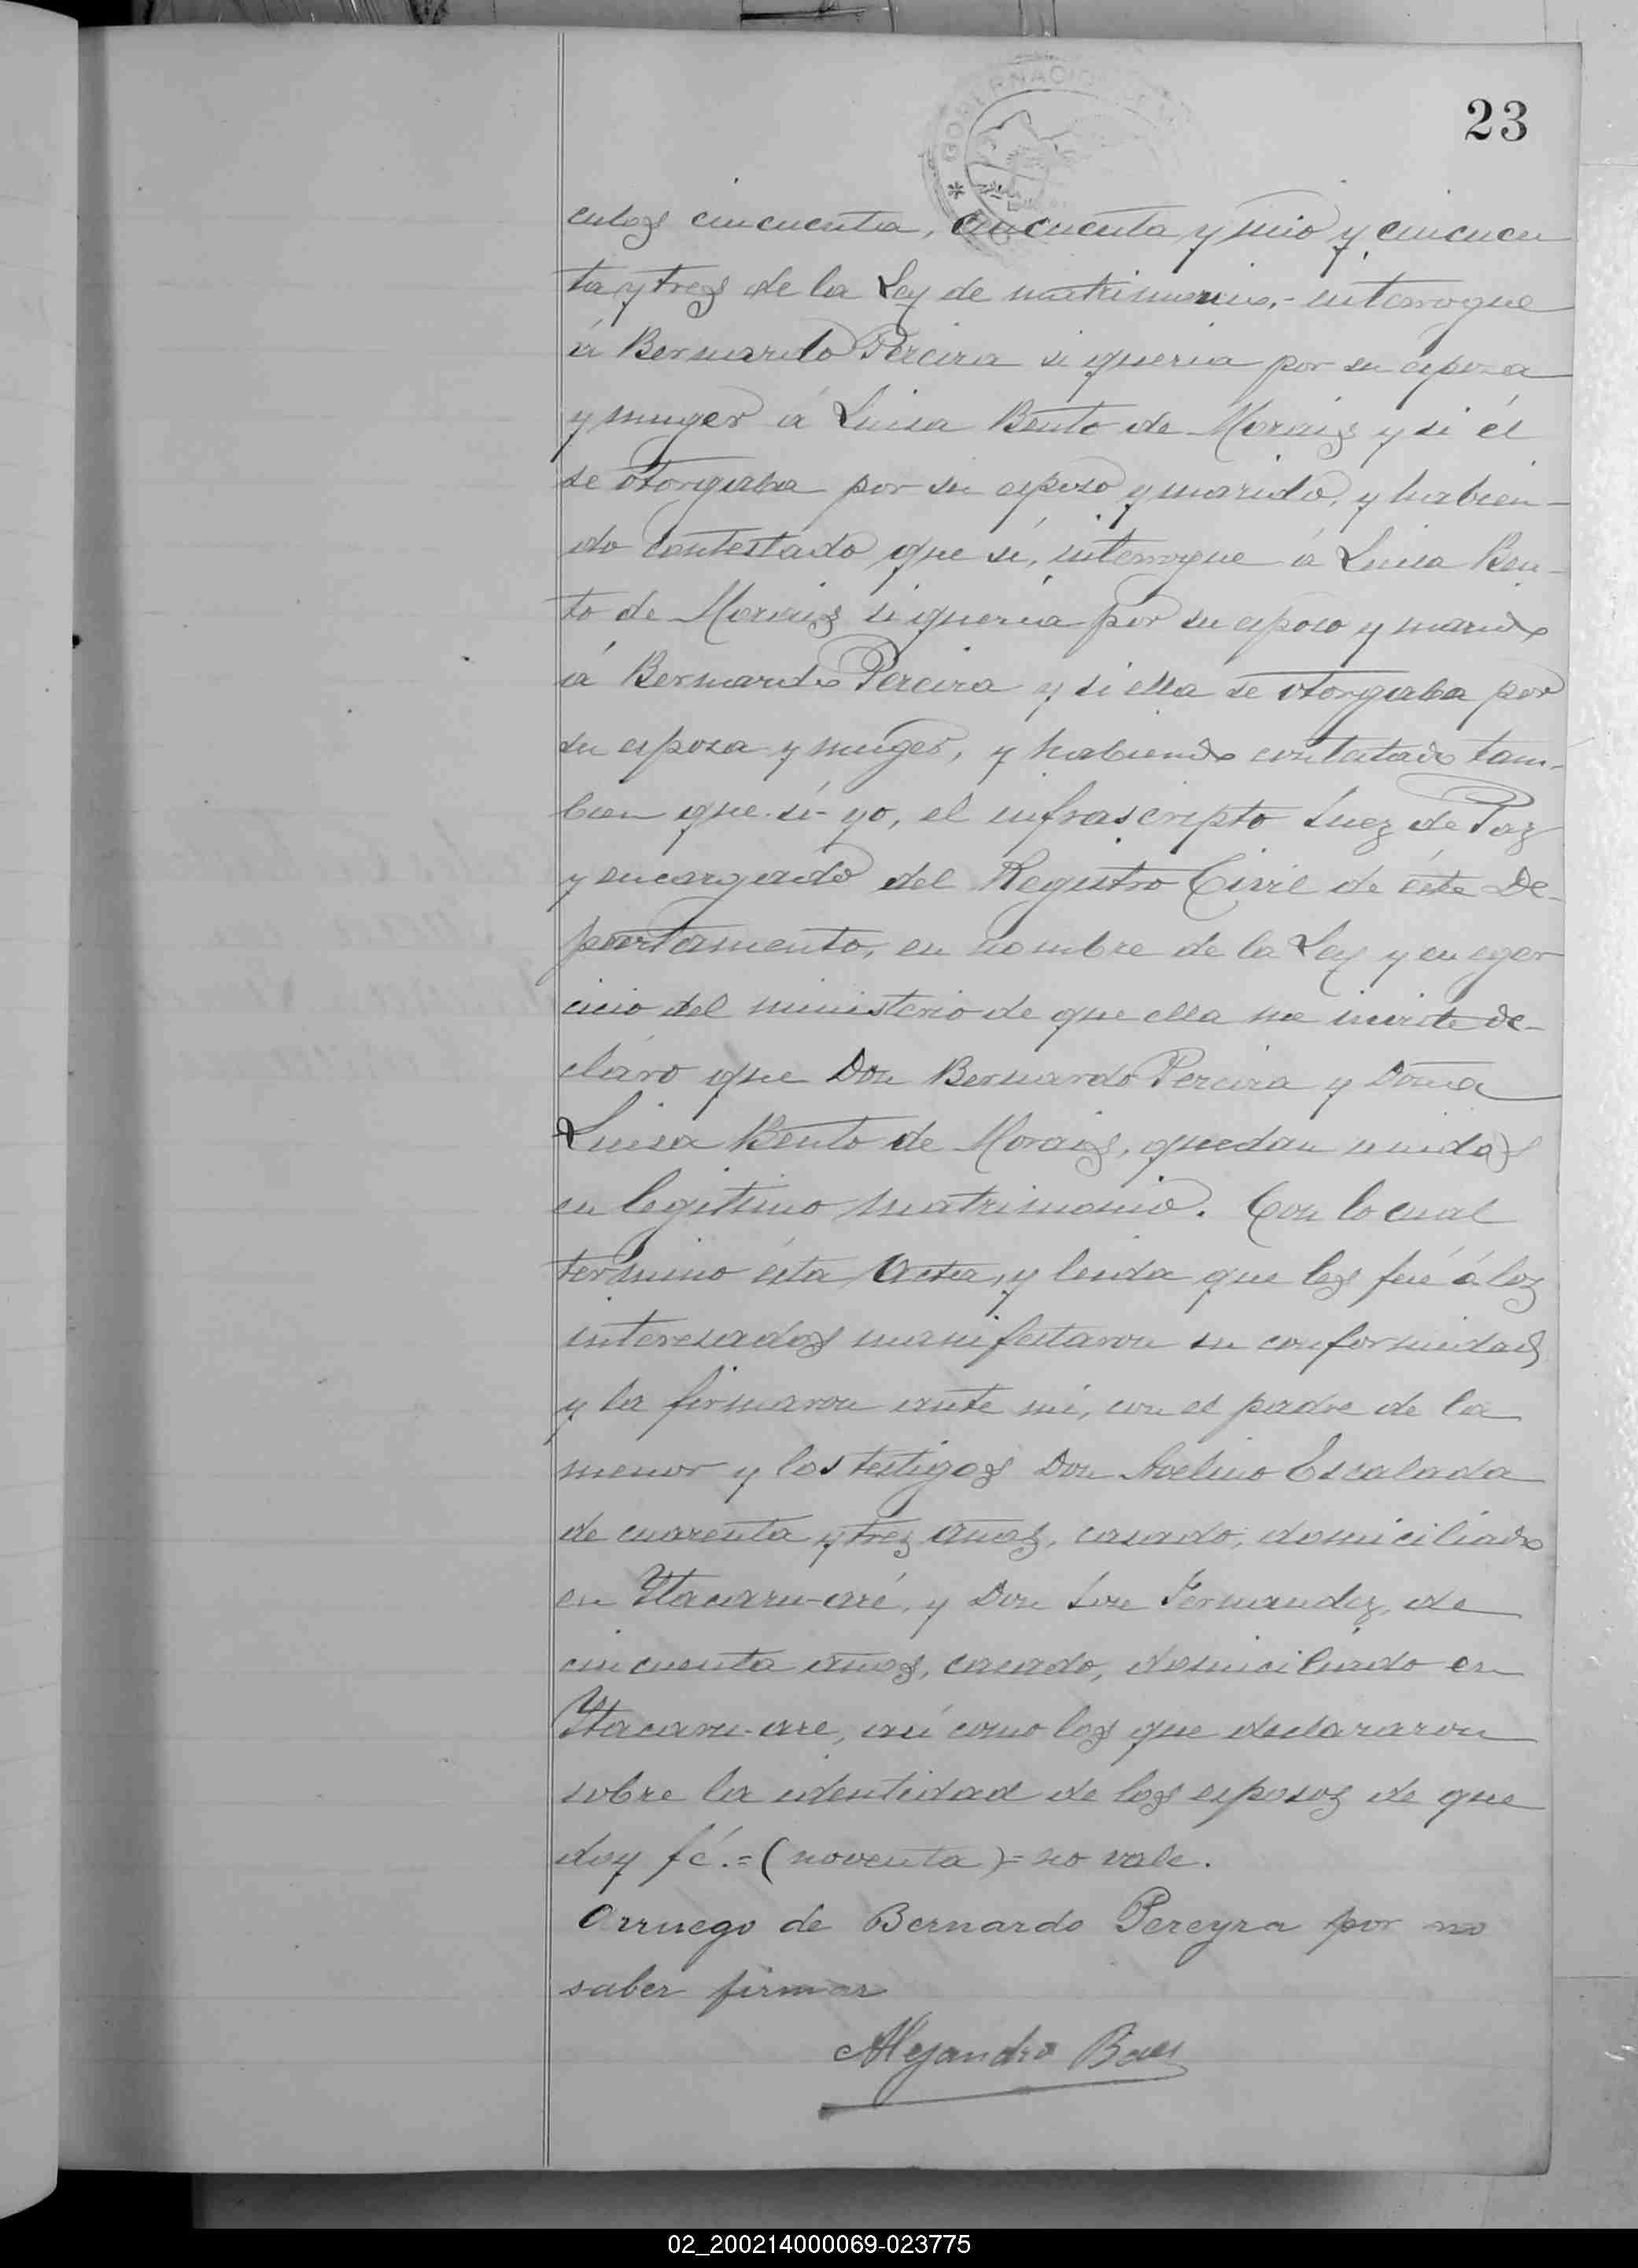 23
GOBERNACIO
culos cincuenta, cincuenta y uno y cincuen
ta y tres de la Ley de matrimonio,- interrogue
á Bernardo Pereira si queria por su espoza
y muger á Luisa Bento de Morais y si él
se otorgaba por su esposo y marido, y habien-
do contestado que sí, interrogue á Luisa Ben-
to de Morais si queria por su esposo y marido
á Bernardo Pereira y si ella se otorgaba por
su espoza y muger, y habiendo contestado tam-
bien que si- yo, el infrascripto Juez de Paz
y encargado del Registro Civil de éste De-
partamento, en nombre de la Ley y en eger
cicio del ministerio de que ella me inviste de-
claro que Don Bernardo Pereira y Doña
Luisa Bento de Morais, quedan unidos
en legitimo matrimonio. Con lo cual
termino ésta Acta, y leida que les fué á los
interesados manifestaron su conformidad
y la firmaron ante mi, con el padre de la
menor y los testigos Don Avelino Escalada
de cuarenta y tres años, casado, domiciliado
en Itacaru-aré, y Don José Fernandez, de
cincuenta años, casado, domiciliado en
Itacaru-are, así como los que declararon
sobre la identidad de los esposos de que
doy fé.=(noventa)=no vale.
Arruego de Bernardo Pereyra por no
saber firmar
Alejandro Baes
02_200214000069-023775